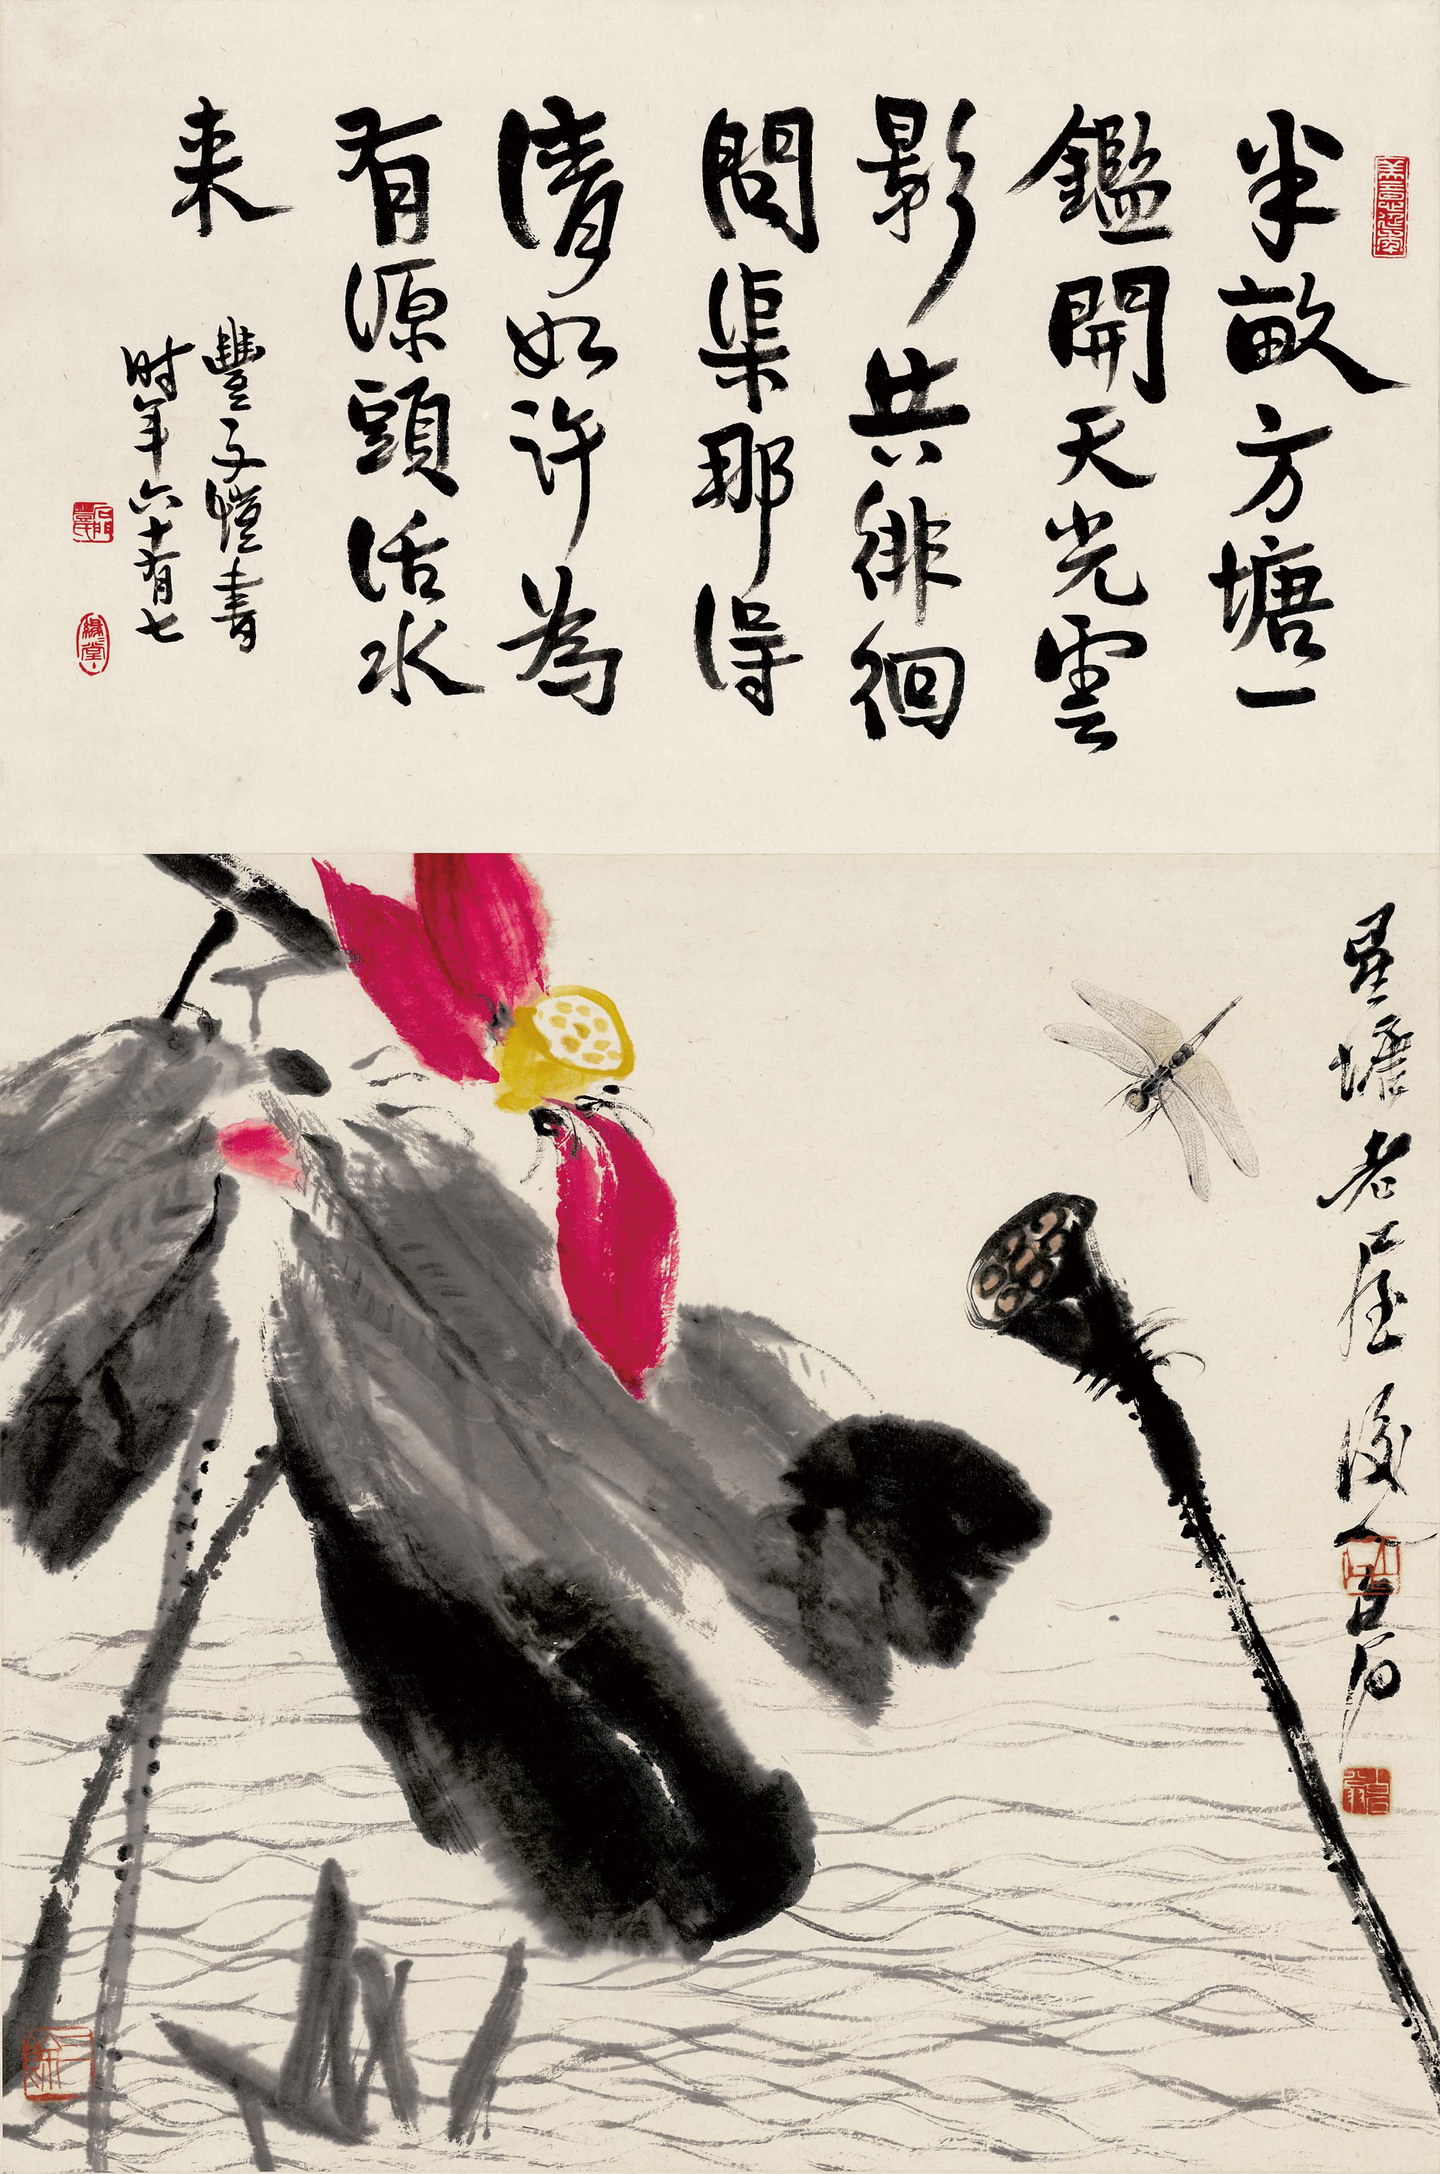 半畝方塘一
鑑開天光雲
影共徘徊
問渠那得
清如許為
有源頭活水
来
豐子愷書
时年六十有七
石門
豐氏
緣緣堂
星塘老屋後人白石